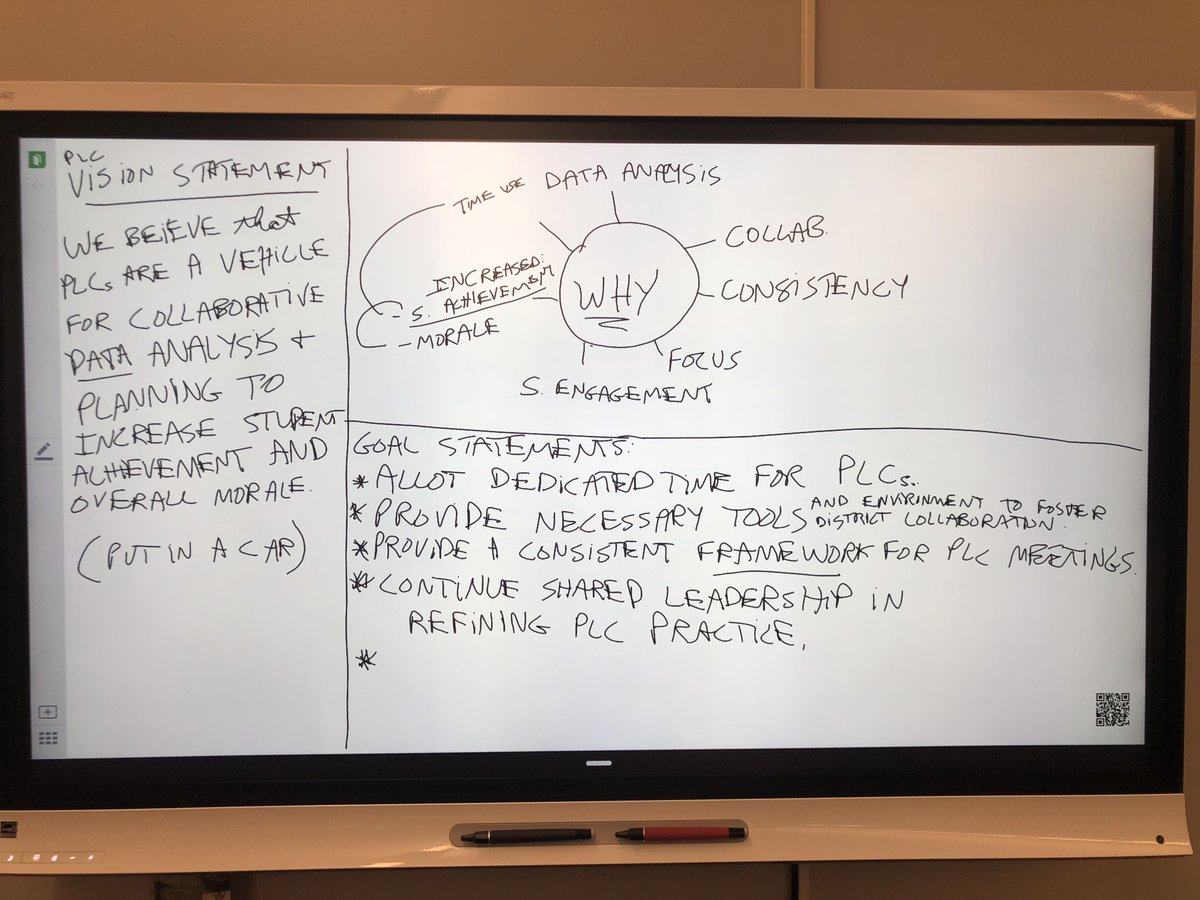 PLC
VISION STATEMENT
WE BEIEVE that
PLCs ARE A VEHICLE
FOR COLLABORATIVE
DATA ANALYSIS +
PLANNING TO
INCREASE STUDENT
ACHIEVEMENT AND
OVERALL MORALE.
(PUT IN A CAR)
TIME USE
DATA ANALYSIS
COLLAB.
CONSISTENCY
FOCUS
S. ENGAGEMENT
INCREASED:
- S. ACHIEVEMENT
- MORALE
WHY
GOAL STATEMENTS:
* ALLOT DEDICATED TIME FOR PLCs.
* PROVIDE NECESSARY TOOLS AND ENVIRINMENT TO FOSTER
DISTRICT COLLABORATION.
* PROVIDE A CONSISTENT FRAMEWORK FOR PLC MEETINGS.
* CONTINUE SHARED LEADERSHIP IN
REFINING PLC PRACTICE.
*